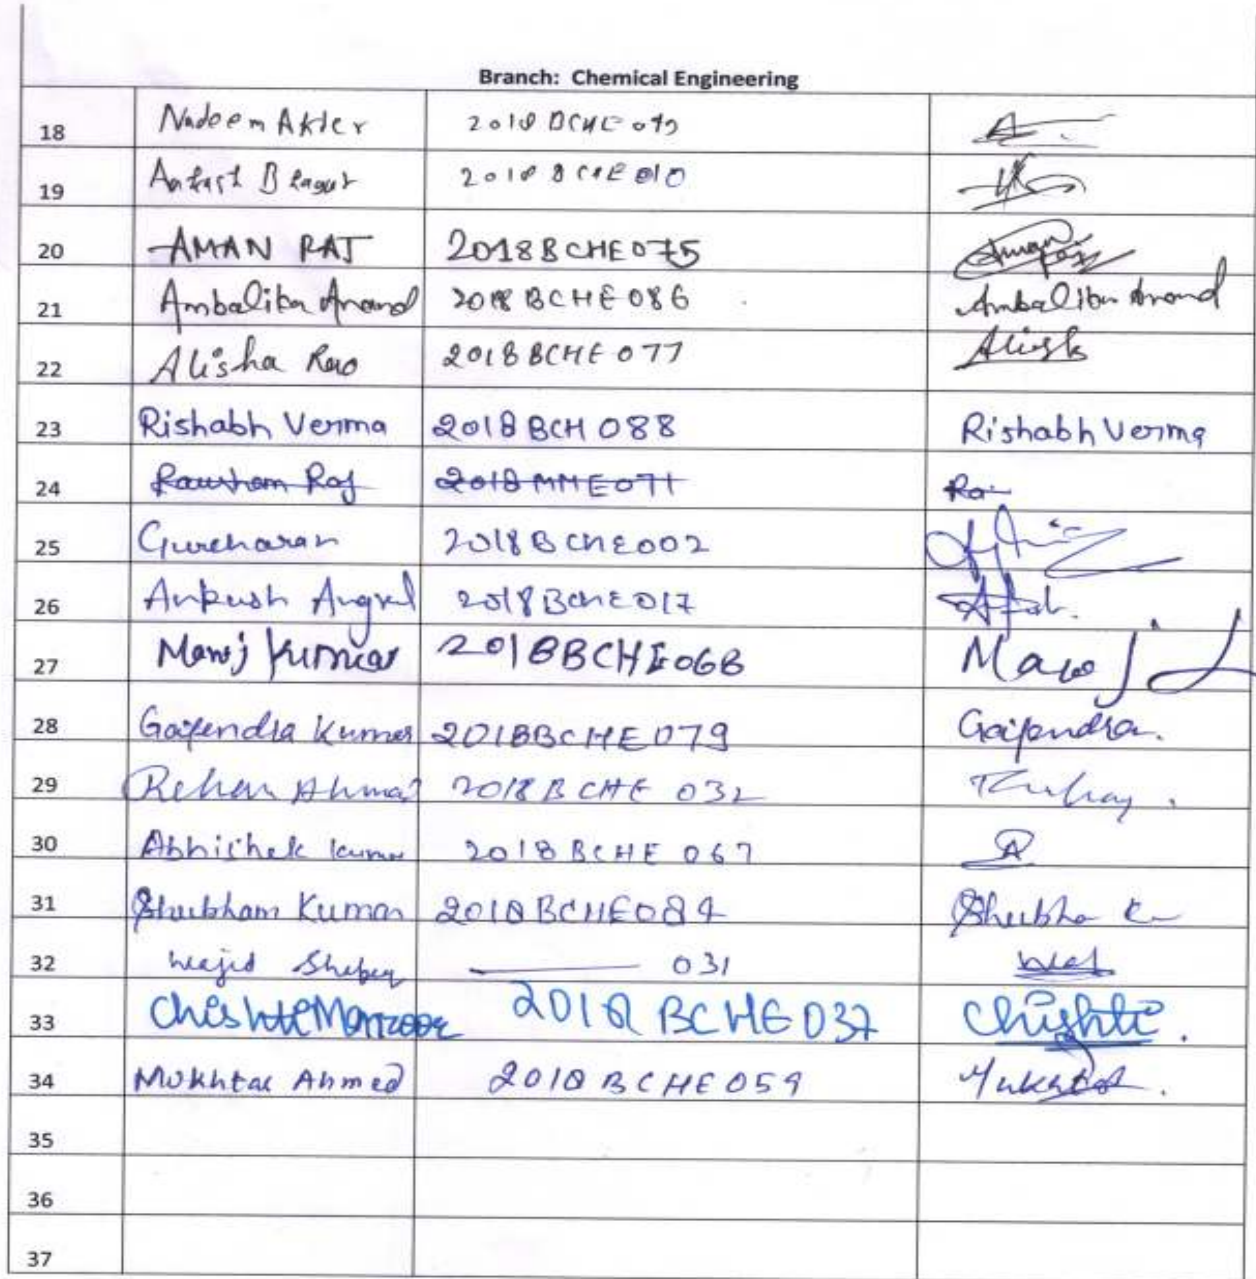 Branch: Chemical Engineering
18 Nadeem Akter 2018 BCHE 049
19 2018 BCHE 010
20 AMAN RAJ 2018BCHE075 Aman Raj
21 Ambalika Anand 2018 BCHE 086 Ambalika Anand
22 Alisha Rao 2018BCHE 077 Alisha
23 Rishabh Verma 2018 BCH 088 Rishabh Verma
24 Raushan Raj 2018MME071 Raj
25 Gurcharan 2018BCHE002
26 Ankush Angral 2018BCHE017
27 Manoj Kumar 2018BCHE068 Manoj
28 Gajendra Kumar 2018BCHE079 Gajendra.
29 Rehan Ahmad 2018BCHE 032
30 Abhishek Kumar 2018BCHE 067 A
31 Shubham Kumar 2018BCHE084 Shubha
32 Wajid 031
33 Chishte Manzoor 2018 BCHE037 Chishti.
34 Mukhtar Ahmed 2018BCHE059 Mukhtar.
35
36
37